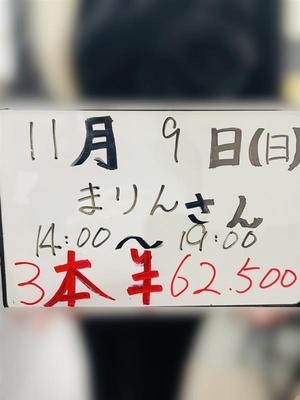 11月 9日(日)
まりんさん
14:00〜19:00
3本 ¥62.500